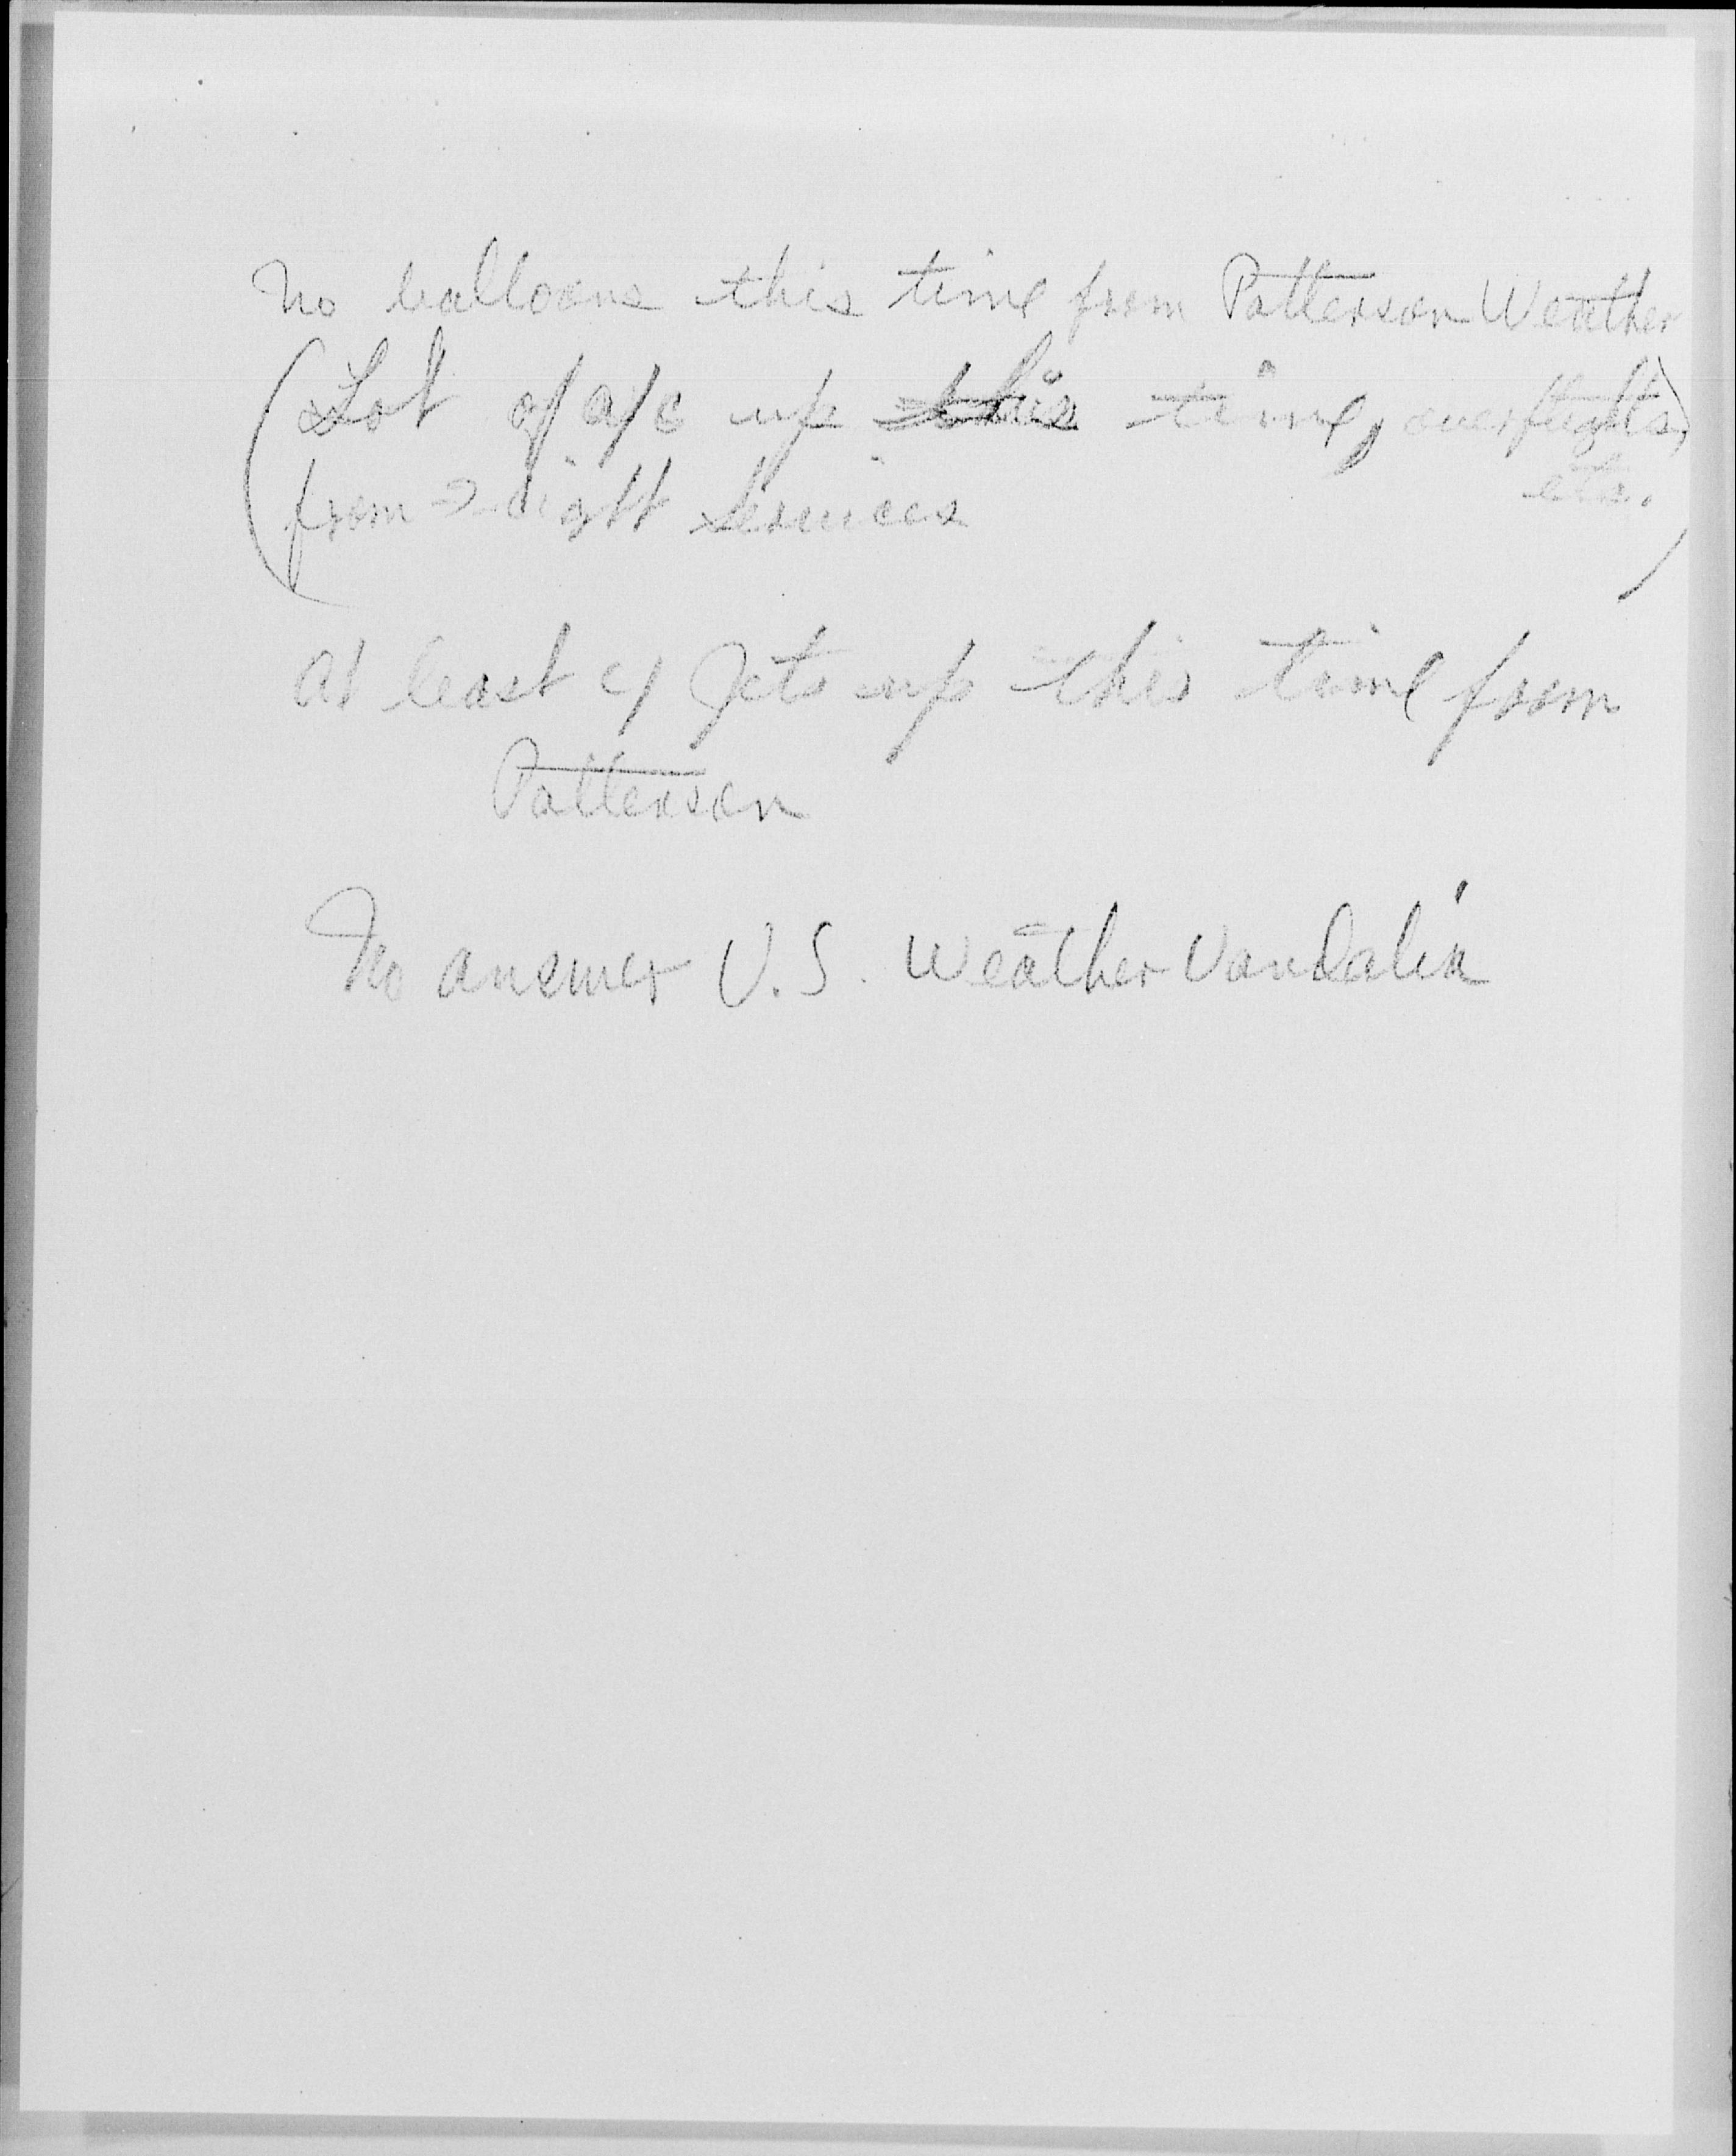 No balloons this time from Patterson Weather
(Lot of a/c up this time, overflights,
from flight Services etc.)
At least 4 Jets up this time from
Patterson
No answer U.S. Weather Vandalia